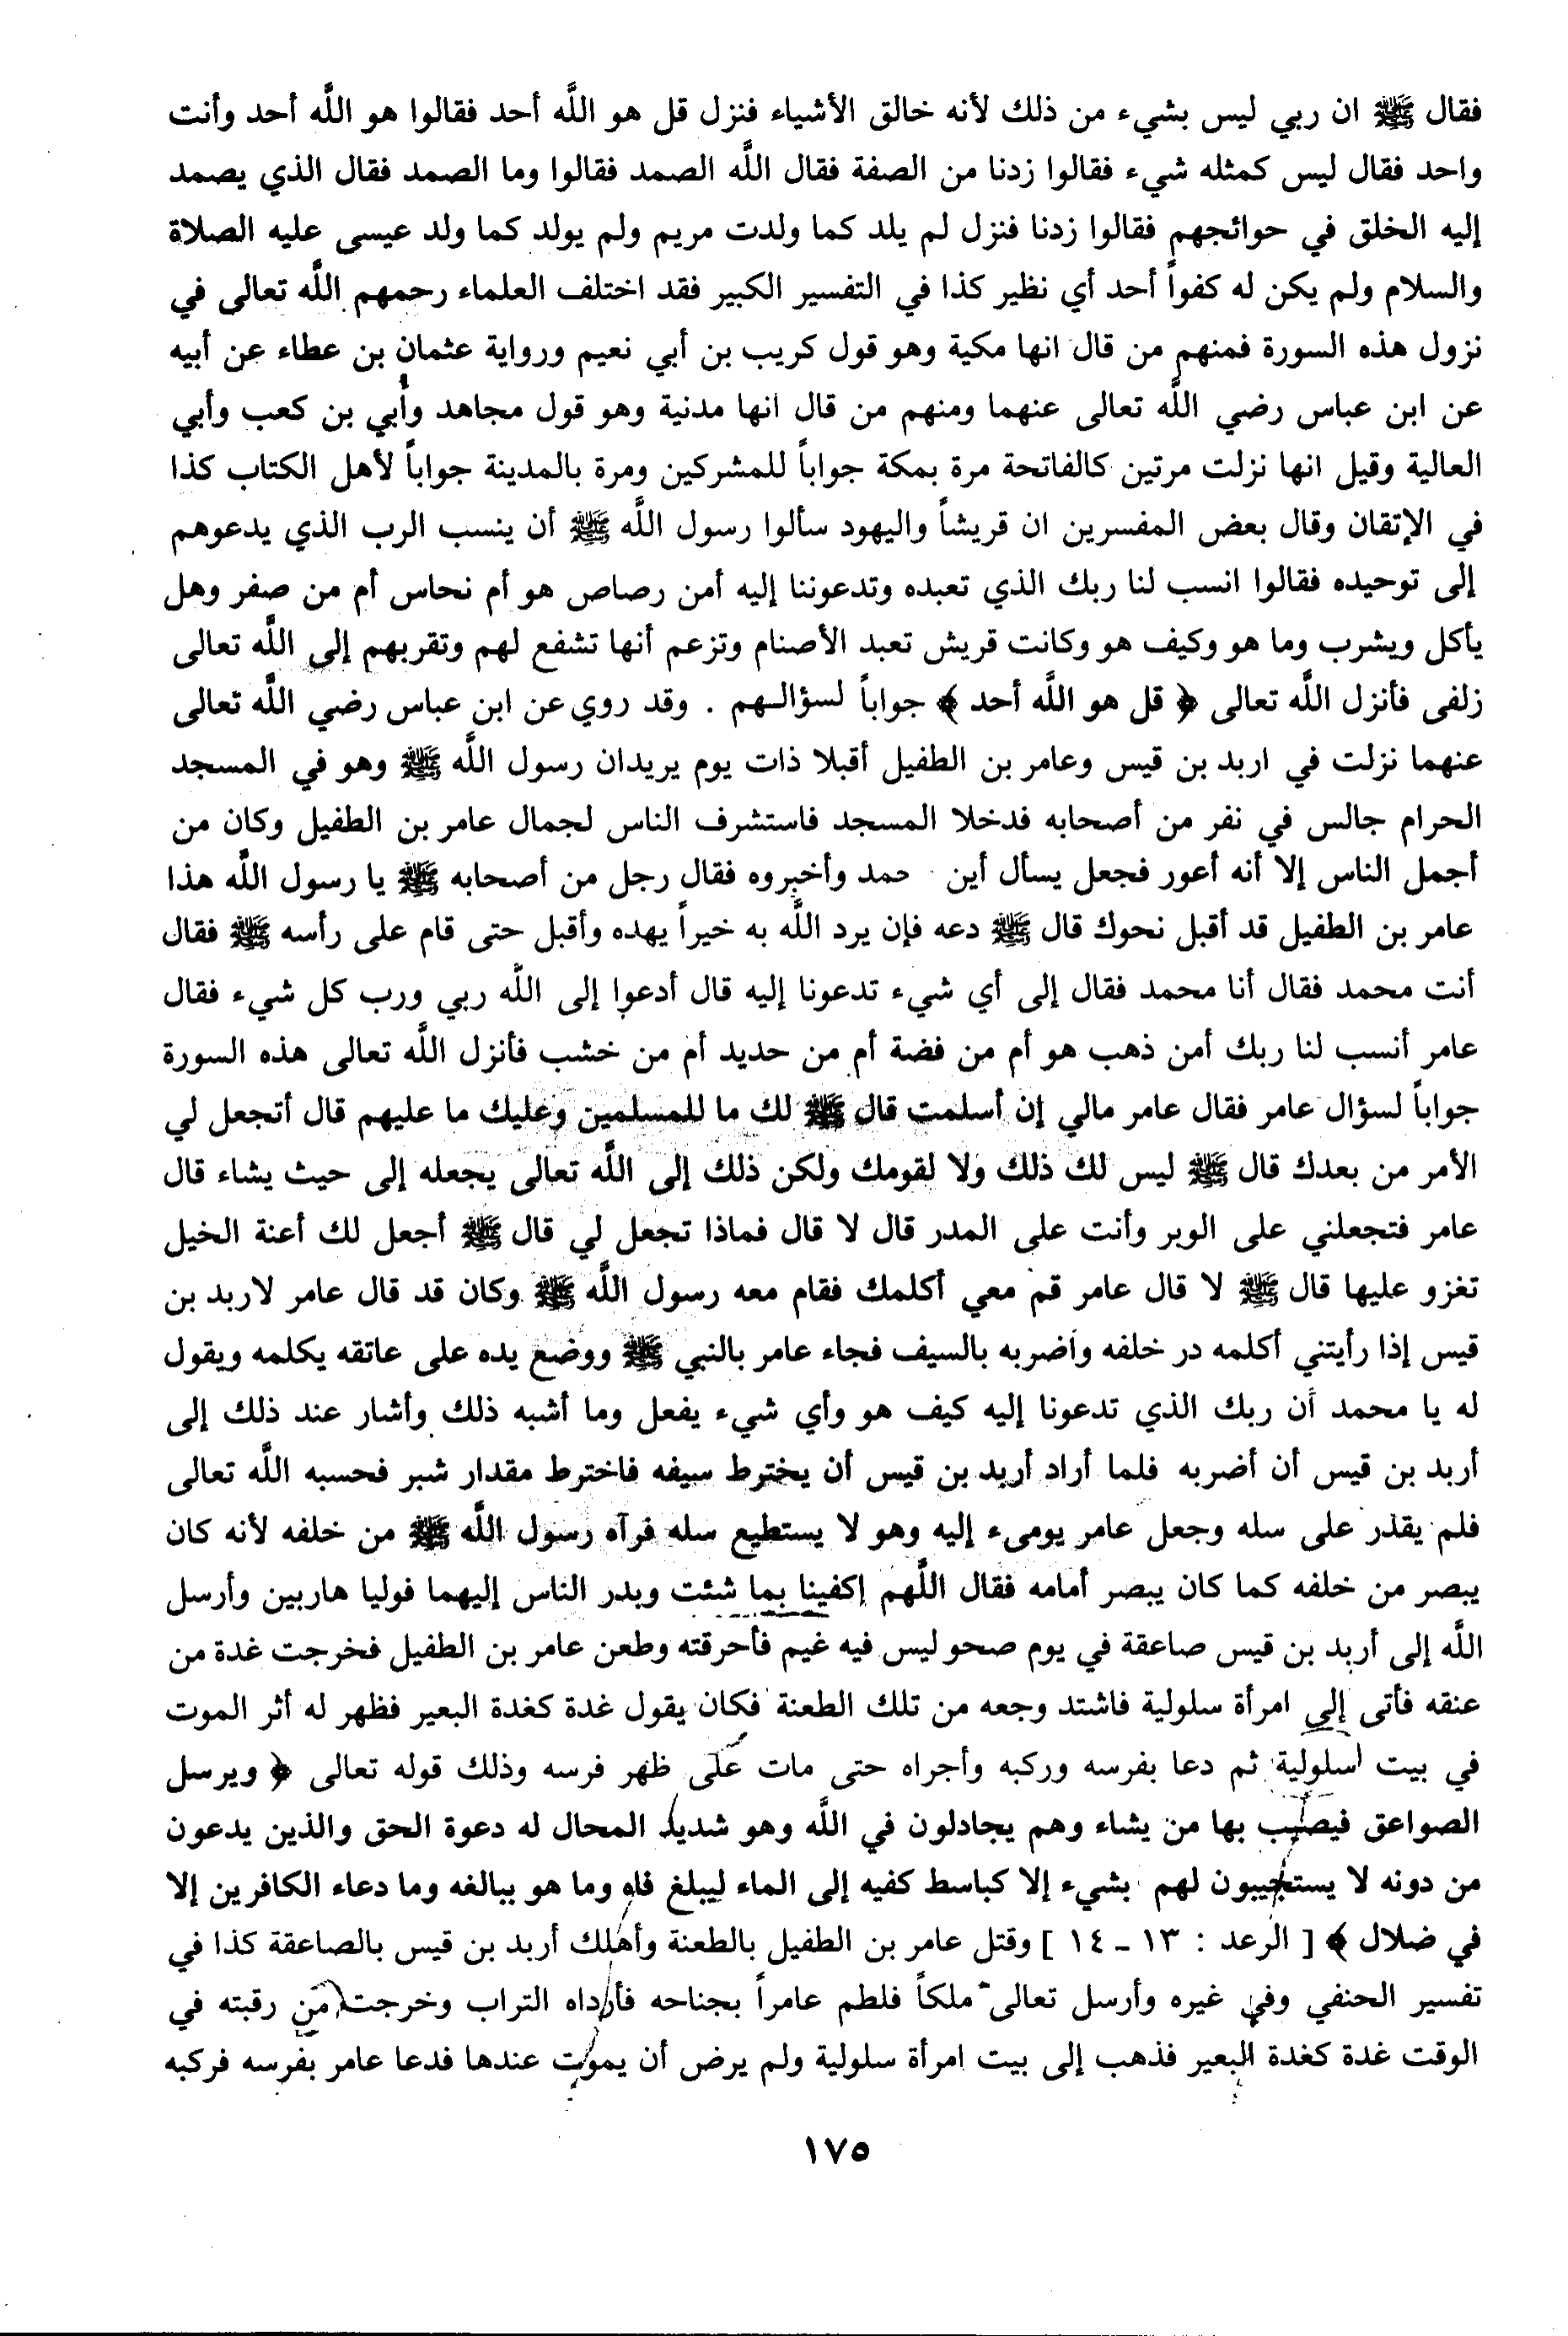 فقال ﷺ ان ربي ليس بشيء من ذلك لأنه خالق الأشياء فنزل قل هو اللَّه أحد فقالوا هو اللَّه أحد وأنت
واحد فقال ليس كمثله شيء فقالوا زدنا من الصفة فقال اللَّه الصمد فقالوا وما الصمد فقال الذي يصمد
إليه الخلق في حوائجهم فقالوا زدنا فنزل لم يلد كما ولدت مريم ولم يولد كما ولد عيسى عليه الصلاة
والسلام ولم يكن له كفواً أحد أي نظير كذا في التفسير الكبير فقد اختلف العلماء رحمهم اللَّه تعالى في
نزول هذه السورة فمنهم من قال انها مكية وهو قول كريب بن أبي نعيم ورواية عثمان بن عطاء عن أبيه
عن ابن عباس رضي اللَّه تعالى عنهما ومنهم من قال انها مدنية وهو قول مجاهد وأُبي بن كعب وأبي
العالية وقيل انها نزلت مرتين كالفاتحة مرة بمكة جواباً للمشركين ومرة بالمدينة جواباً لأهل الكتاب كذا
في الإتقان وقال بعض المفسرين ان قريشاً واليهود سألوا رسول اللَّه ﷺ أن ينسب الرب الذي يدعوهم
إلى توحيده فقالوا انسب لنا ربك الذي تعبده وتدعوننا إليه أمن رصاص هو أم نحاس أم من صفر وهل
يأكل ويشرب وما هو وكيف هو وكانت قريش تعبد الأصنام وتزعم أنها تشفع لهم وتقربهم إلى اللَّه تعالى
زلفى فأنزل اللَّه تعالى ﴿ قل هو اللَّه أحد ﴾ جواباً لسؤالهم . وقد روي عن ابن عباس رضي اللَّه تعالى
عنهما نزلت في اربد بن قيس وعامر بن الطفيل أقبلا ذات يوم يريدان رسول اللَّه ﷺ وهو في المسجد
الحرام جالس في نفر من أصحابه فدخلا المسجد فاستشرف الناس لجمال عامر بن الطفيل وكان من
أجمل الناس إلا أنه أعور فجعل يسأل أين حمد وأخبروه فقال رجل من أصحابه ﷺ يا رسول اللَّه هذا
عامر بن الطفيل قد أقبل نحوك قال ﷺ دعه فإن يرد اللَّه به خيراً يهده وأقبل حتى قام على رأسه ﷺ فقال
أنت محمد فقال أنا محمد فقال إلى أي شيء تدعونا إليه قال أدعوا إلى اللَّه ربي ورب كل شيء فقال
عامر أنسب لنا ربك أمن ذهب هو أم من فضة أم من حديد أم من خشب فأنزل اللَّه تعالى هذه السورة
جواباً لسؤال عامر فقال عامر مالي إن أسلمت قال ﷺ لك ما للمسلمين وعليك ما عليهم قال أتجعل لي
الأمر من بعدك قال ﷺ ليس لك ذلك ولا لقومك ولكن ذلك إلى اللَّه تعالى يجعله إلى حيث يشاء قال
عامر فتجعلني على الوبر وأنت على المدر قال لا قال فماذا تجعل لي قال ﷺ أجعل لك أعنة الخيل
تغزو عليها قال ﷺ لا قال عامر قم معي أكلمك فقام معه رسول اللَّه ﷺ وكان قد قال عامر لاربد بن
قيس إذا رأيتني أكلمه در خلفه وأضربه بالسيف فجاء عامر بالنبي ﷺ ووضع يده على عاتقه يكلمه ويقول
له يا محمد أن ربك الذي تدعونا إليه كيف هو وأي شيء يفعل وما أشبه ذلك وأشار عند ذلك إلى
أربد بن قيس أن أضربه فلما أراد أربد بن قيس أن يخترط سيفه فاخترط مقدار شبر فحسبه اللَّه تعالى
فلم يقدر على سله وجعل عامر يومىء إليه وهو لا يستطيع سله فرآه رسول اللَّه ﷺ من خلفه لأنه كان
يبصر من خلفه كما كان يبصر أمامه فقال اللَّهم إكفينا بما شئت وبدر الناس إليهما فوليا هاربين وأرسل
اللَّه إلى أربد بن قيس صاعقة في يوم صحو ليس فيه غيم فأحرقته وطعن عامر بن الطفيل فخرجت غدة من
عنقه فأتى إلى امرأة سلولية فاشتد وجعه من تلك الطعنة فكان يقول غدة كغدة البعير فظهر له أثر الموت
في بيت سلولية ثم دعا بفرسه وركبه وأجراه حتى مات على ظهر فرسه وذلك قوله تعالى ﴿ ويرسل
الصواعق فيصيب بها من يشاء وهم يجادلون في اللَّه وهو شديد المحال له دعوة الحق والذين يدعون
من دونه لا يستجيبون لهم بشيء إلا كباسط كفيه إلى الماء ليبلغ فاه وما هو ببالغه وما دعاء الكافرين إلا
في ضلال ﴾ [ الرعد : ١٣ - ١٤ ] وقتل عامر بن الطفيل بالطعنة وأهلك أربد بن قيس بالصاعقة كذا في
تفسير الحنفي وفي غيره وأرسل تعالى ملكاً فلطم عامراً بجناحه فأرداه التراب وخرجت من رقبته في
الوقت غدة كغدة البعير فذهب إلى بيت امرأة سلولية ولم يرض أن يموت عندها فدعا عامر بفرسه فركبه
١٧٥